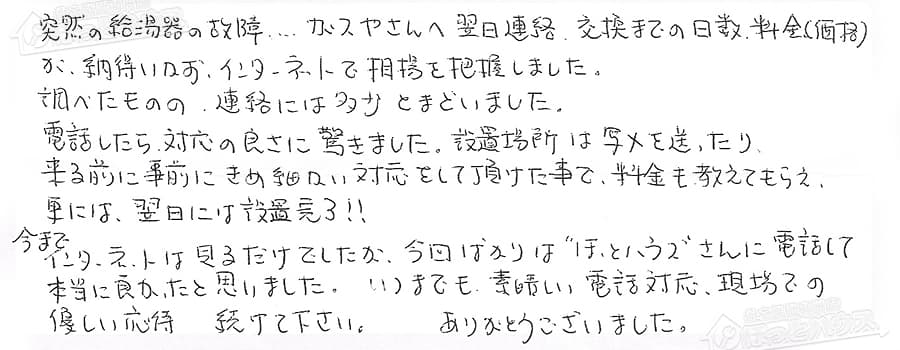 突然の給湯器の故障... ガスやさんへ翌日連絡、交換までの日数、料金(価格)
が、納得いかず、インターネットで相場を把握しました。
調べたものの、連絡には多少とまどいました。
電話したら、対応の良さに驚きました。設置場所は写メを送ったり、
来る前に事前にきめ細かい対応をして頂けた事で、料金も教えてもらえ、
更には、翌日には設置完了!!
今まで
インターネットは見るだけでしたが、今回ばかりは"ほっとハウス"さんに電話して
本当に良かったと思いました。いつまでも素晴しい電話対応、現場での
優しい応待 続けて下さい。 ありがとうございました。